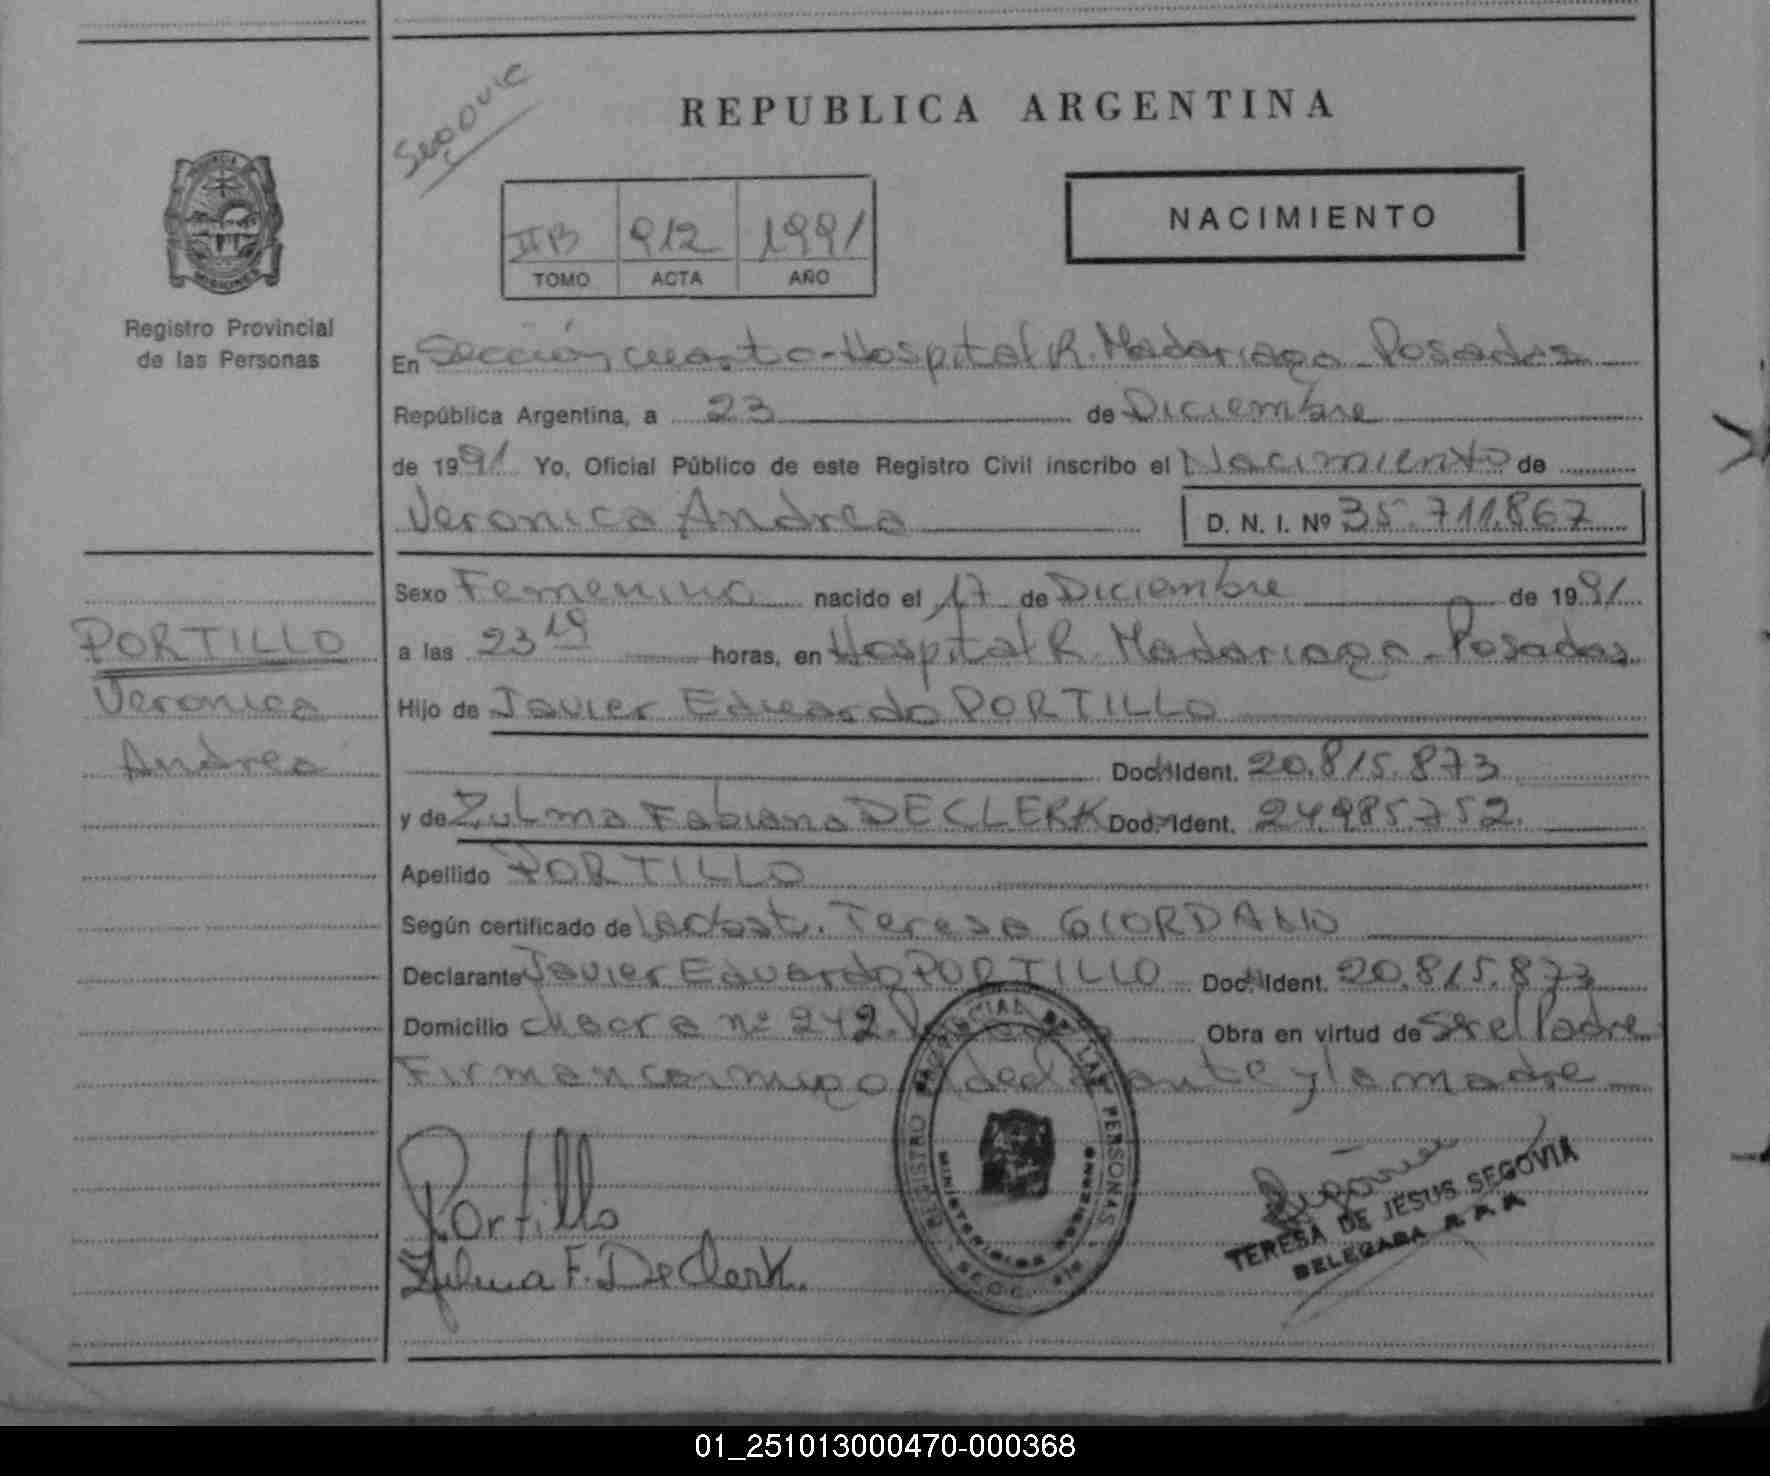 REPUBLICA ARGENTINA
NACIMIENTO
IIB 912 1991
TOMO ACTA AÑO
Registro Provincial
de las Personas
En Sección cuarta - Hospital R. Madariaga - Posadas
República Argentina, a 23 de Diciembre
de 1991 Yo, Oficial Público de este Registro Civil inscribo el Nacimiento de
Veronica Andrea D. N. I. Nº 35.711.867
PORTILLO
Veronica
Andrea
Sexo Femenino nacido el 17 de Diciembre de 1991
a las 23 19 horas, en Hospital R. Madariaga - Posadas
Hijo de Javier Eduardo PORTILLO
Doc. Ident. 20.815.873
y de Zulma Fabiana DECLERK Doc. Ident. 24.985.752.
Apellido PORTILLO
Según certificado de la obst. Teresa GIORDANO
Declarante Javier Eduardo PORTILLO Doc. Ident. 20.815.873
Domicilio chacra nº 242. Obra en virtud de ser el Padre
Firman conmigo el declarante y la madre
Portillo
Zulma F. DeClerk.
REGISTRO PROVINCIAL DE LAS PERSONAS
TERESA DE JESUS SEGOVIA
DELEGADA R.P.P.
01_251013000470-000368